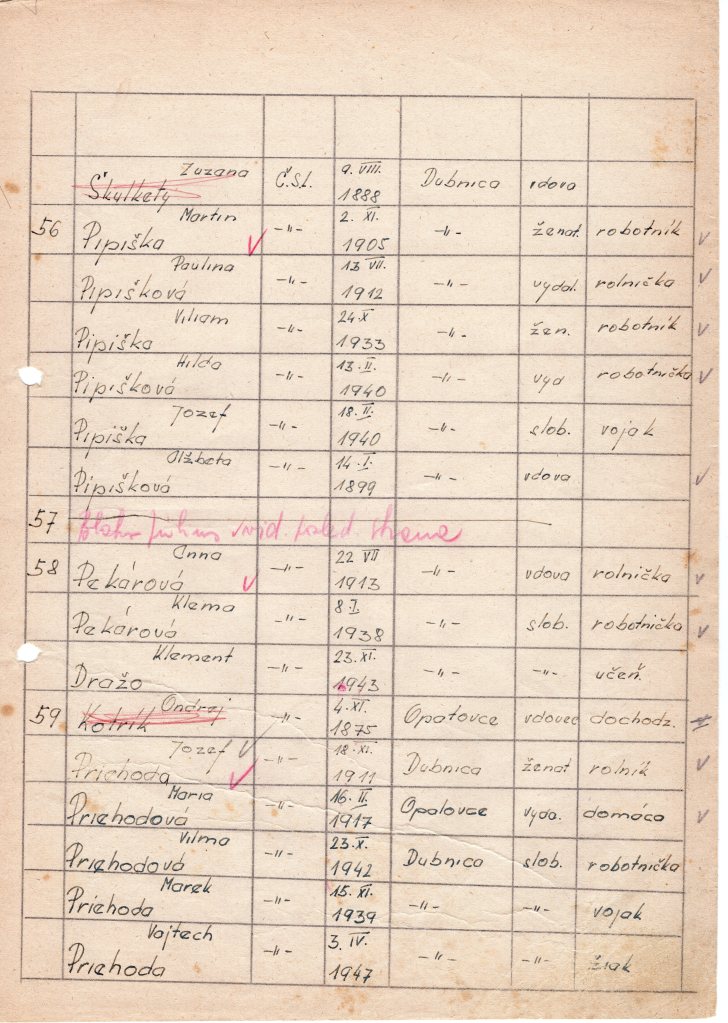 Zuzana
Škulkety Č.Sl. 9. VIII. 1888 Dubnica vdova
Martin
56 Pipiška -"- 2. XI. 1905 -"- ženat. robotník
Paulina
Pipišková -"- 13 VII. 1912 -"- vydal. rolnička
Viliam
Pipiška -"- 24.X 1933 -"- žen. robotník
Hilda
Pipišková -"- 13.II. 1940 -"- vyd robotnička
Jozef
Pipiška -"- 18.II. 1940 -"- slob. vojak
Olžbeta
Pipišková -"- 14.I. 1899 -"- vdova
57 —
Anna
58 Pekárová -"- 22 VII 1913 -"- vdova rolnička
Klema
Pekárová -"- 8.I. 1938 -"- slob. robotnička
Klement
Dražo -"- 23.XI. 1943 -"- -"- učeň.
Ondrej
59 Kotrík -"- 4.XI. 1875 Opatovce vdovec dochodz.
Jozef
Priehoda -"- 18.XI. 1911 Dubnica ženat rolník
Maria
Priehodová -"- 16.II. 1917 Opatovce vyda. domáca
Vilma
Priehodová -"- 23.X. 1942 Dubnica slob. robotnička
Marek
Priehoda -"- 15.XI. 1939 -"- -"- vojak
Vojtech
Priehoda -"- 3. IV. 1947 -"- -"- žiak